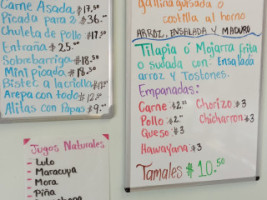 Carne Asada, $17.50
Picada para 2 $36.
Chuleta de pollo $17.50
Entraña $25.00
Sobrebarriga $18.50
Mini picada $18.50
Bistec a la criolla $17
Arepa con todo $12.00
Alitas con Papas $9.
Jugos Naturales
- Lulo
- Maracuya
- Mora
- Piña
gallina guisada o
costilla al horno
ARROZ, ENSALADA Y MADURO
Tilapia o Mojarra frita
o sudada con Ensalada
arroz y Tostones.
Empanadas:
Carne $2.00 Chorizo $3
Pollo 2.00 Chicharron $3
Queso $3
Hawayana $3
Tamales $10.50